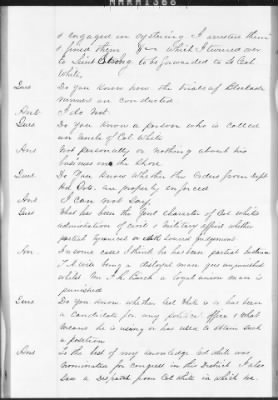 & engaged in oystering I arrested them
& fined them $ which I turned over
to Lieut Strong to be forwarded to Lt Col
White
Ques Do you know how the trials of Blockade
runners are conducted
Ans I do not
Ques Do you know a person who is called
 of Col White
Ans Not personally or nothing about his
business on the Shore
Ques Do you know whether the orders from Dept
Hd Qrs. are properly enforced
Ans I can not Say
Ques What has been the general character of Col Whites
administration of civil & military affairs whether
partial tyranical or judgement
Ans In some cases I think he has been partial
 being a disloyal man goes unpunished
whilst Mr Birch a loyal union man is
punished
Ques Do you know whether Col White is or has been
a candidate for any political office & what
means he is using or has used to obtain such
a position
Ans To the best of my knowledge Col White was
nominated for congress in this District I also
saw a Despatch from Col White in which he